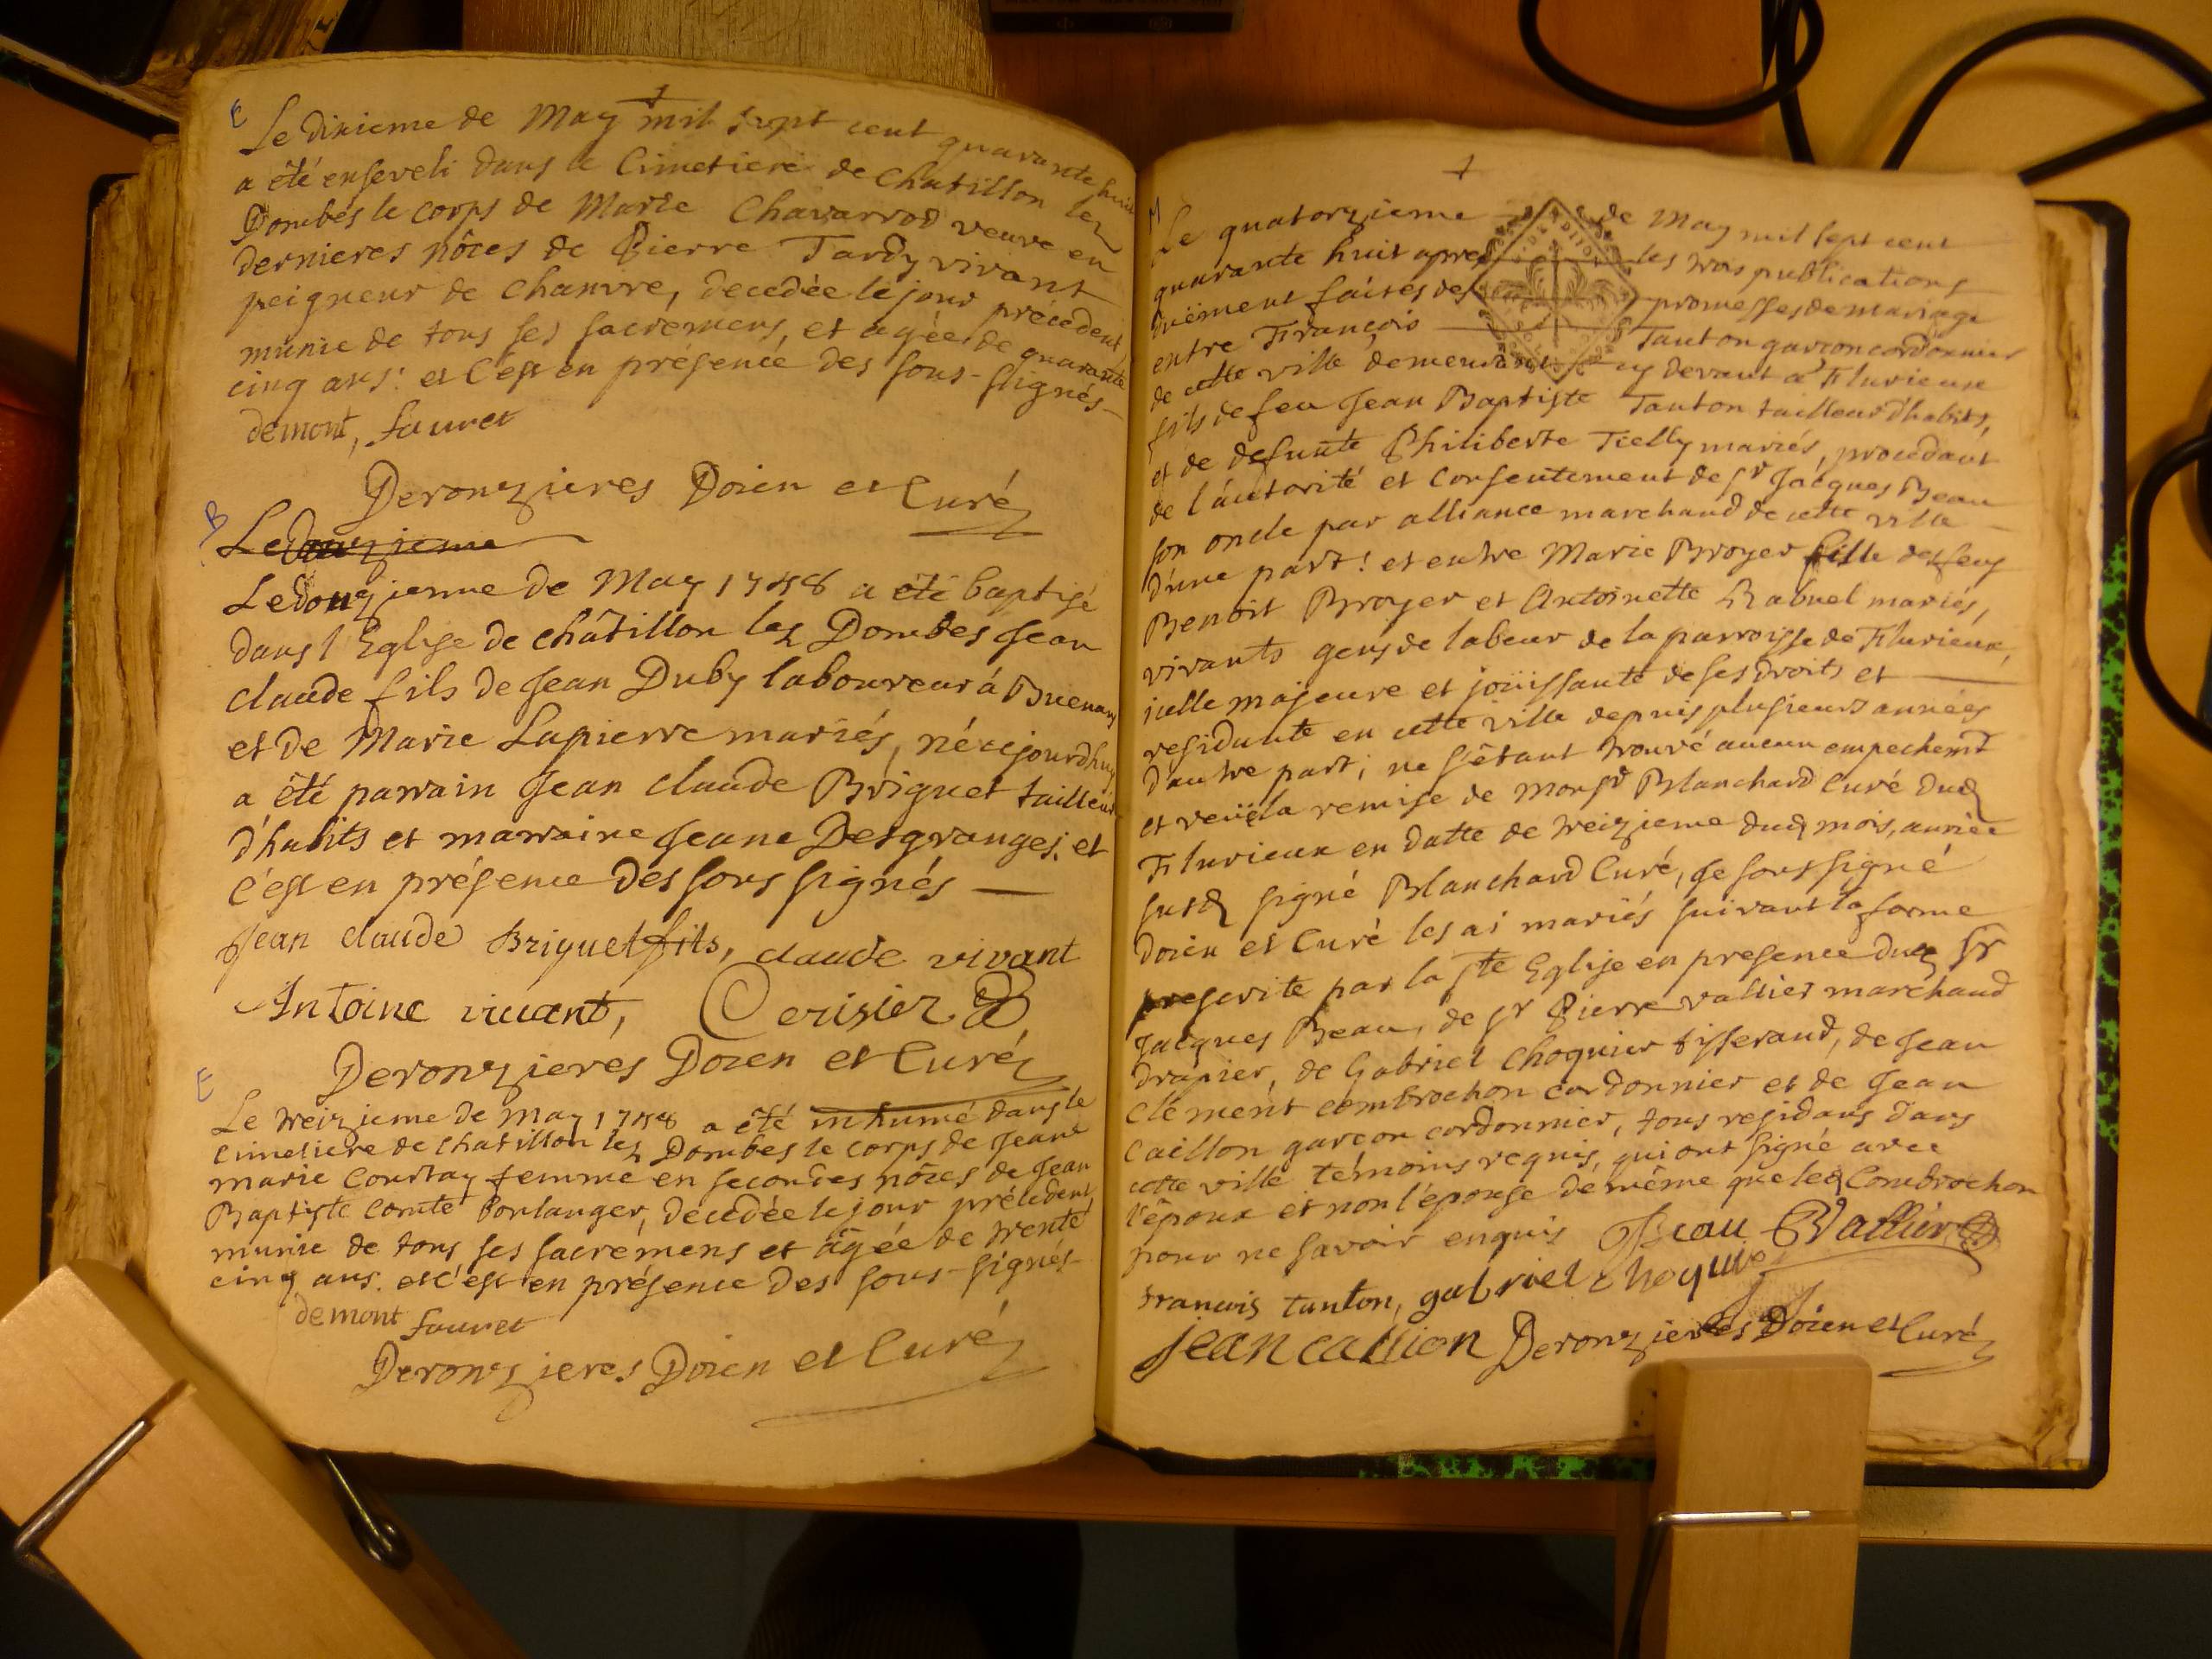 E
Le dixieme de May mil sept cent quarante huit
a été enseveli dans le Cimetiere de Chatillon lez
Dombes le corps de Marie Chavarrod veuve en
dernieres nôces de Pierre Tardy vivant
peigneur de Chanvre, decedée le jour précedent
munie de tous ses sacremens, et agée de quarante
cinq ans: et c'est en présence des sous-signés
demont, fauret
Deronzieres Doien et Curé
B
Le douzieme
Le douzieme de May 1748 a été baptisé
dans l'Eglise de châtillon lez Dombes Jean
claude fils de Jean Duby laboureur à Buenans
et de Marie Lapierre mariés, né cejourdhuy
a été parrain Jean claude Briguet tailleur
d'habits et marraine Jeane Desgranges; et
c'est en présence des sous signés
Jean claude Briguet fils, claude vivant
Antoine vivant, Cerisier
Deronzieres Doien et Curé
E
Le treizieme de May 1748 a été inhumé dans le
cimetiere de chatillon lez Dombes le corps de Jeane
marie Courtay femme en secondes nôces de Jean
Baptiste Comte boulanger, decedée le jour précedent
munie de tous ses sacrémens et âgée de trente
cinq ans. et c'est en présence des sous-signés
demont fauret
Deronzieres Doien et Curé
M
Le quatorzieme de May mil sept cent
quarante huit apres les trois publications
duëment faites des promesses de mariage
entre François Tanton garçon cordonnier
de cette ville demeurant cy devant à Flurieux
fils de feu Jean Baptiste Tanton tailleur d'habits,
et de defunte Philiberte mariés, procedant
de l'autorité et consentement de sr Jacques Beau
son oncle par alliance marchand de cette ville
d'une part: et entre Marie Broyer fille de feus
Benoit Broyer et Antoinette Rabuel mariés,
vivants gens de labeur de la parroisse de Flurieux,
icelle majeure et joüissante de ses droits et
residante en cette ville depuis plusieurs années
d'autre part; ne s'êtant trouvé aucun empechemt
et veüe la remise de Monsr Blanchard Curé dud
Flurieux en datte de treizieme dud mois, année
susd signé Blanchard Curé, Je soussigné
Doien et Curé les ai mariés suivant la forme
prescrite par la ste Eglise en presence dud sr
Jacques Beau, de sr Pierre vallier marchand
drapier, de Gabriel Choquier tisserand, de Jean
Clement combrochon cordonnier et de Jean
Caillon garçon cordonnier, tous residans dans
cette ville témoins requis, qui ont signé avec
l'époux et non l'épouse de même que led Combrochon
pour ne savoir enquis JBeau PVallier
francois tanton, gabriel choquie
jean caillion Deronzieres Doien et Curé